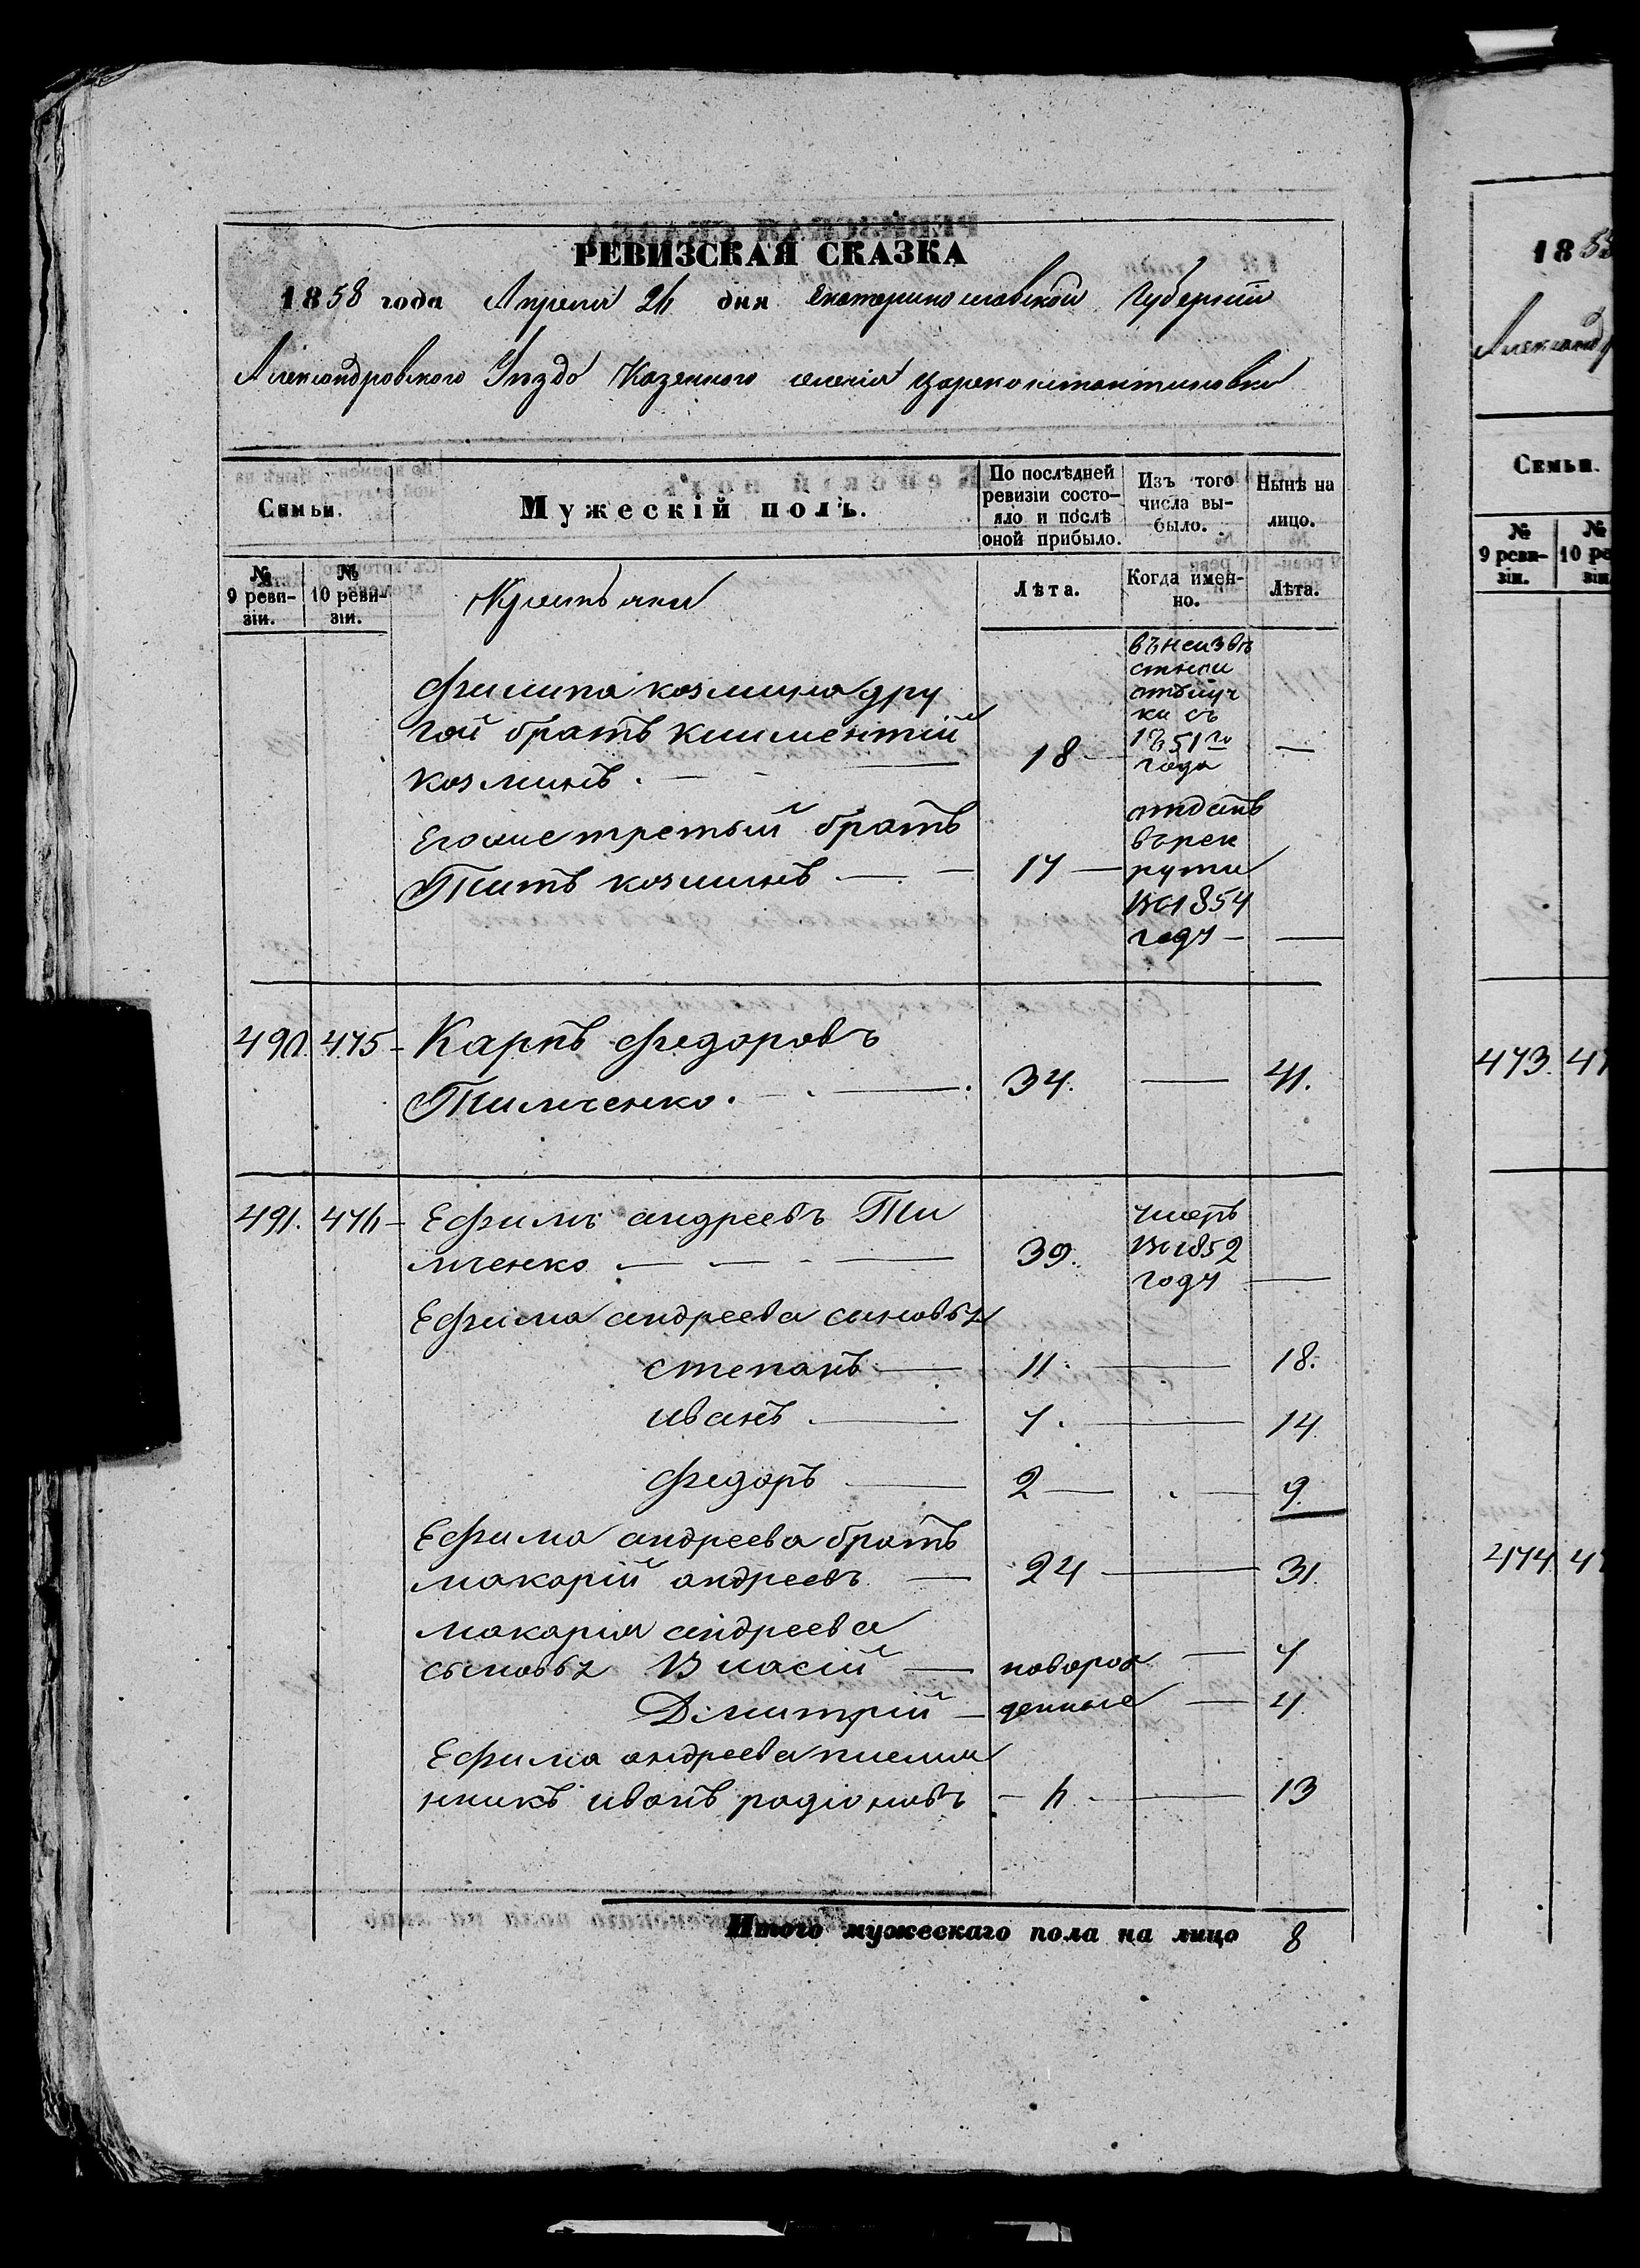 РЕВИЗСКАЯ СКАЗКА
1858 года Апреля 26 дня Екатеринославской Губернии
Александровского Уѣзда Казенного селенія Цареконстантиновки
Семьи.
Мужескій полъ.
По послѣдней ревизіи состо-
яло и послѣ
оной прибыло.
Изъ того
числа вы-
было.
Нынѣ на
лицо.
№ 9 реви-
зіи.
№ 10 реви-
зіи.
Крестьяне
Лѣта.
Когда имен-
но.
Лѣта.
Филипа козмина дру
гой братъ климентій
козминъ. 18 въ неизвѣ
стной
отлуч
ки съ
1851го
года —
Егоже третьий братъ
Титъ козминъ — 17 — отданъ
въ рек
руты
въ 1854
году —
490. 475 Карпъ Федоровъ
Тимченко. 34. — 41.
491. 476 Ефимъ андреевъ Ти
мченко — 39. умеръ
въ 1852
году —
Ефима андреева сыновья
степанъ — 11. — 18.
иванъ. — 7. — 14
Федоръ — 2 — 9.
Ефима андреева братъ
макарій андреевъ — 24 — 31.
макария андреева
сыновья Власій — новорож — 7
Дмитрій — денные — 4
Ефима андреева племя
нникъ иванъ радіоновъ — 6 — 13
Итого мужескаго пола на лицо 8
1858
Александр
Семьи.
№
9 реви-
зіи.
№
10 ре
зіи
473. 47
474 47